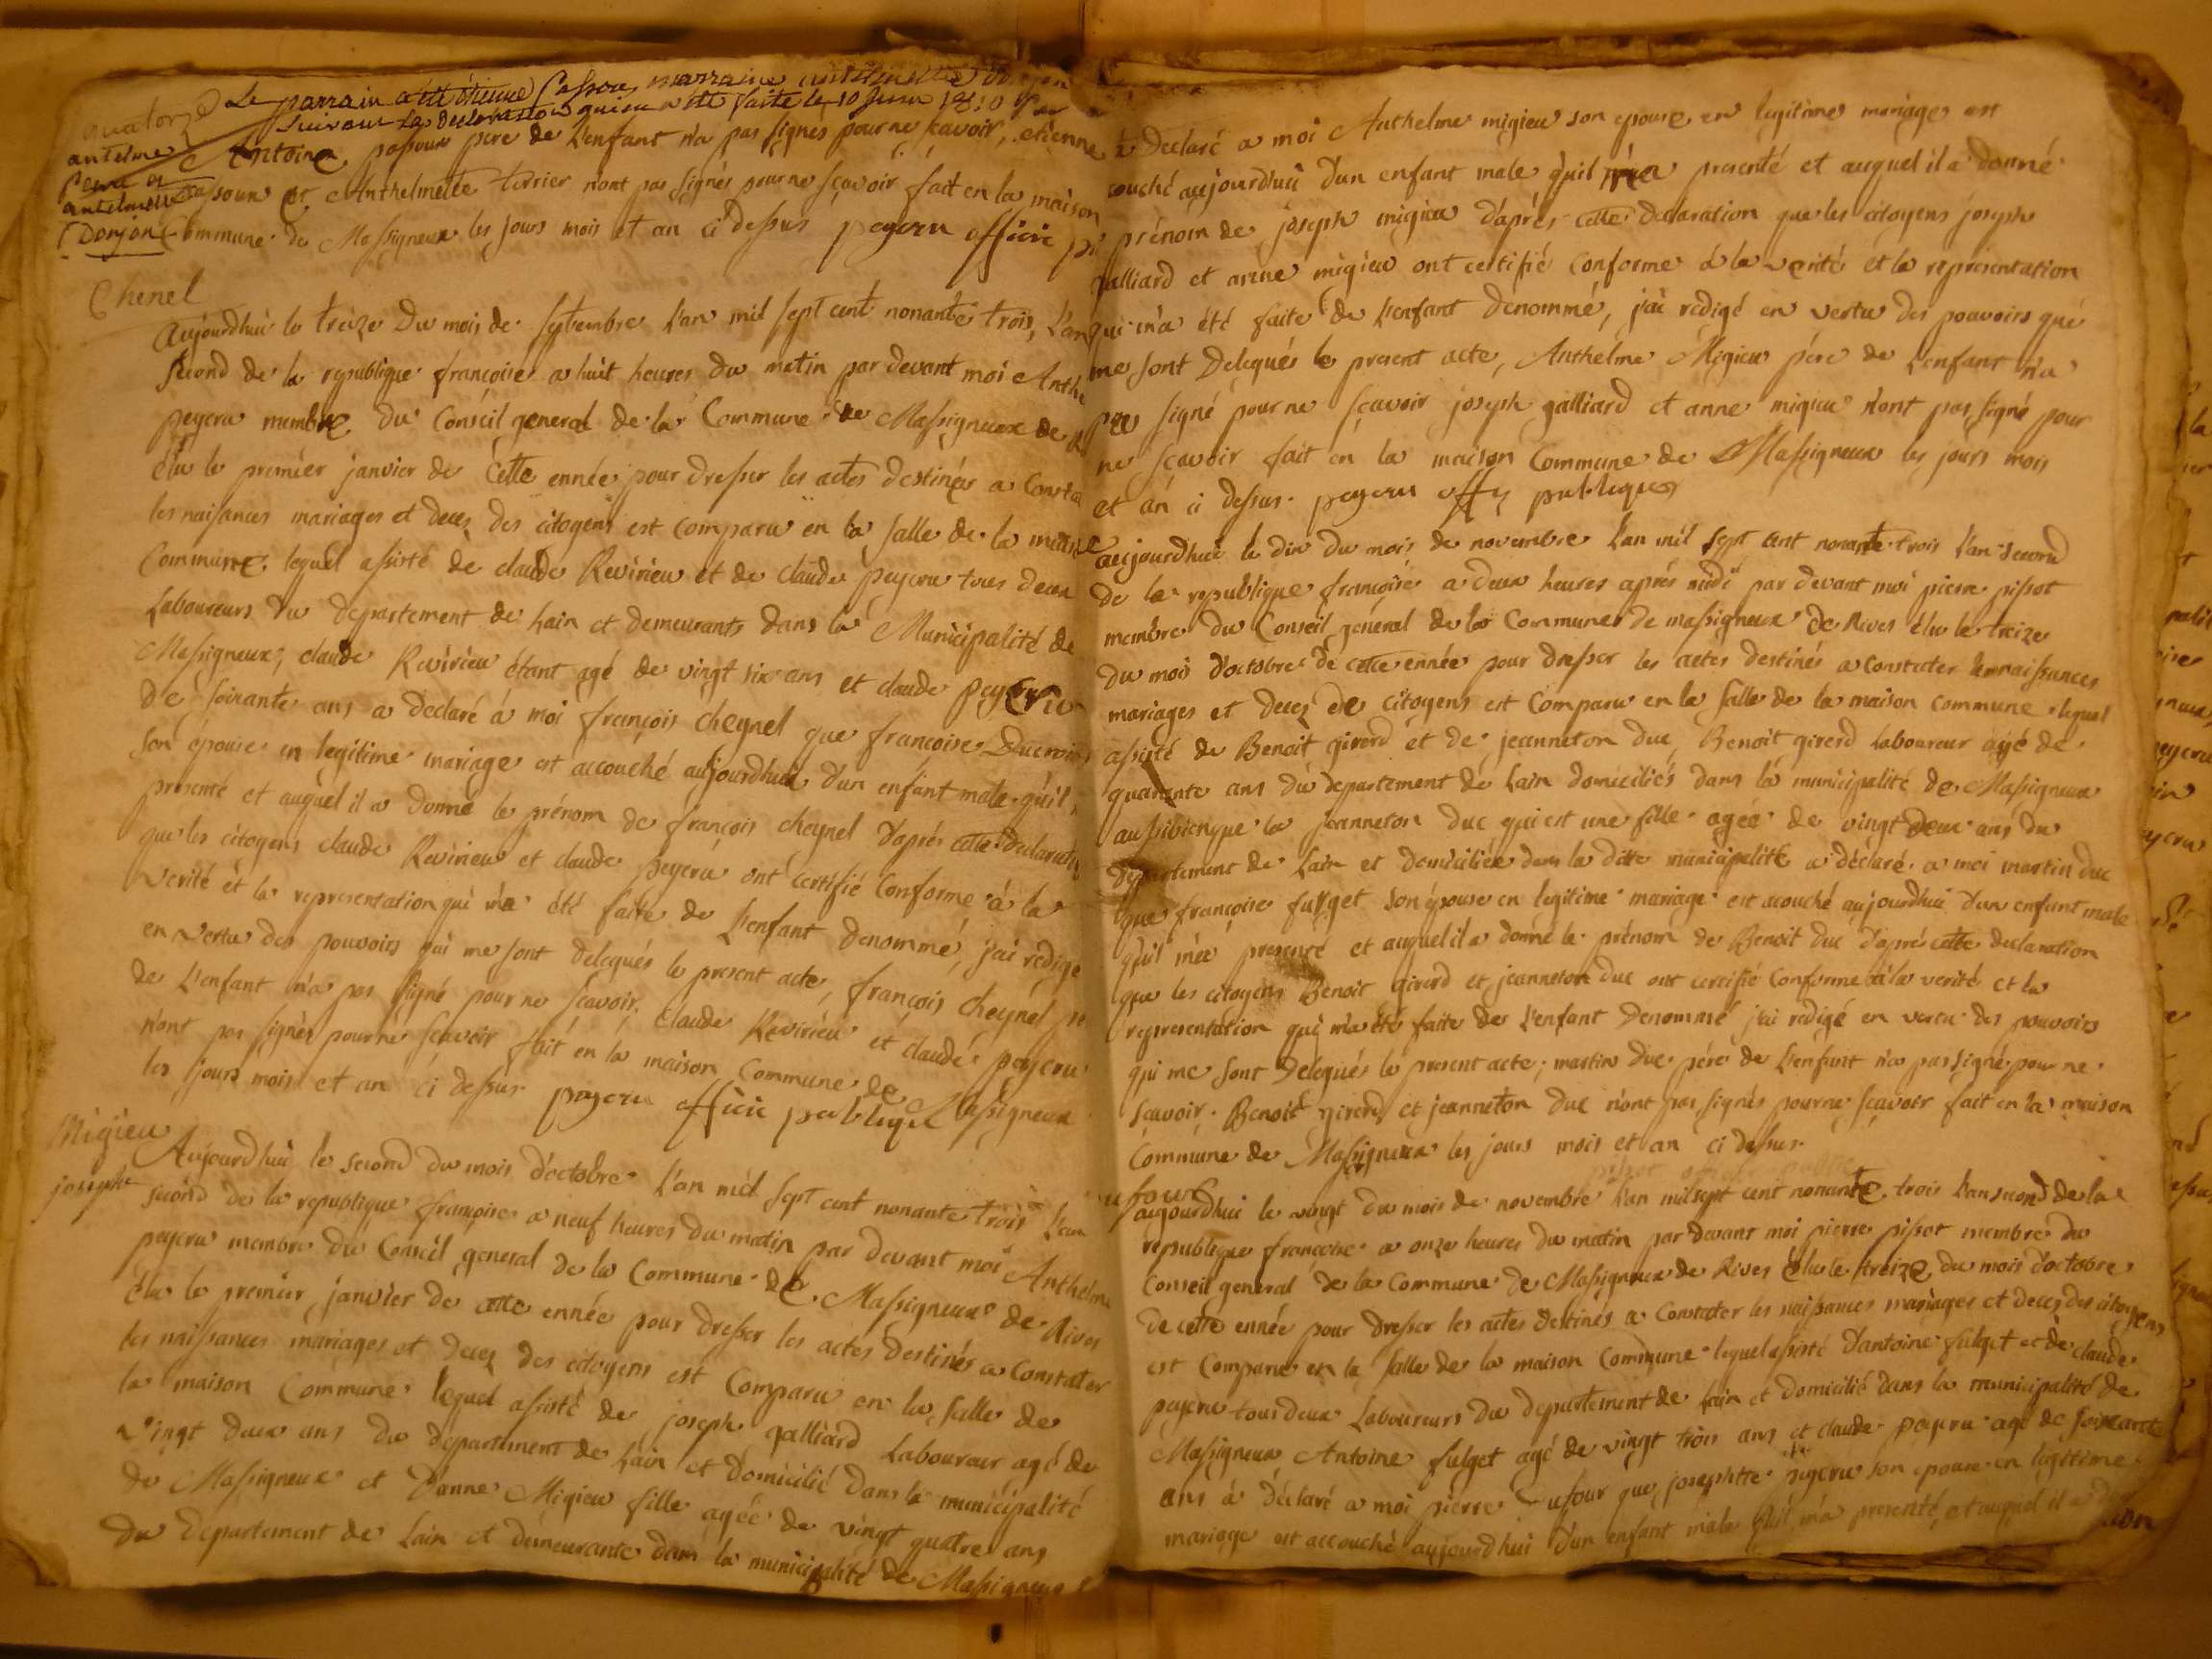 Le parrain a été étienne passou marraine
suivant la declaration qui en a été faite le 10
antelme
Antoine passoux pere de L'enfant n'a pas signés pour ne scavoir, etienne
antelme
passoux et Anthelmette terrier n'ont pas signés pour ne sçavoir fait en la maison
Donjon
Commune de Massigneux les jours mois et an ci dessus peyeru officie
Chenel
Aujourdhui le treize Du mois de Septembre L'an mil sept cent nonante trois, L'an
second de la republique françoise a huit heures du matin par devant moi Anthe
peyeru membre du Conseil general de la Commune de Massigneux de
élu le premier janvier de Cette ennée pour dresser les actes destinés a Consta
les naissances mariages et deces des citoyens est comparu en la salle de la maiso
Commune lequel assisté de claude Revirieu et de claude peyeru tous deux
Laboureurs du departement de Lain et demeurants dans la Municipalité de
Massigneux, claude Revirieu étant agé de vingt six ans et claude peyeru
de soixante ans a declaré á moi françois cheynel que françoise Ducroix
son épouse en legitime mariage est accouché aujourdhui d'un enfant male qu'il
presenté et auquel il a donné le prénom de françois cheynel d'aprés cette declaration
que les citoyens claude Revirieu et claude peyeru ont certifié Conforme á la
verité et la representation qui m'a été faite de L'enfant denommé, j'ai redigé
en vertu des pouvoirs qui me sont delegués le present acte, françois cheynel pe
de L'enfant n'a pas signé pour ne sçavoir. Claude Revirieu et claude peyeru
n'ont pas signés pour ne sçavoir fait en la maison Commune de Massigneux
les jours mois et an ci dessus peyeru officie publique
Migieu
Aujourdhui le second du mois d'octobre L'an mil sept cent nonante trois L'an
josephe
second de la republique françoise a neuf heures du matin par devant moi Anthelme
peyeru membre du Conseil general de la Commune de Massigneux de Rives
élu le premier janvier de cette ennée pour dresser les actes destinés a Constater
les naissances mariages et deces des citoyens est Comparu en la salle de
la maison Commune lequel assisté de joseph galliard Laboureur agé de
vingt deux ans du departement de Lain et domicilié dans la municipalité
de Massigneux et d'anne Migieu fille agée de vingt quatre ans
du departement de Lain et demeurante dans la municipalité de Massigneux
a declaré a moi Anthelme migieu son epouse en legitime mariage est
couché aujourdhui d'un enfant male qu'il m'a presenté et auquel il a donné
prénom de joseph migieu d'aprés cette declaration que les citoyens joseph
galliard et anne migieu ont certifié conforme á la verité et la representation
qui m'a été faite de L'enfant denommé, j'ai redigé en vertu des pouvoirs qui
me sont delegués le present acte, Anthelme Migieu pére de L'enfant n'a
pas signé pour ne sçavoir joseph galliard et anne migieu n'ont pas signé pour
ne sçavoir fait en la maison Commune de Massigneux les jours mois
et an ci dessus. peyeru offi publique
aujourdhui le dix du mois de novembre L'an mil sept cent nonante trois L'an second
de la republique françoise a deux heures aprés midi par devant moi pierre pissot
membre du Conseil général de la Commune de massigneux de Rives élu le treize
du mois d'octobre de cette ennée pour dresser les actes destinés a constater les naissances
mariages et deces de citoyens est Comparu en la salle de la maison commune lequel
assisté de Benoit girerd et de jeanneton duc, Benoit girerd Laboureur agé de
quarante ans du departement de Lain domiciliés dans la municipalité de Massigneux
aussibienque la jeanneton duc qui est une fille agée de vingt deux ans du
departement de Lain et domiciliée dans la ditte municipalité a déclaré a moi martin duc
que françoise furget son épouse en legitime mariage est acouché aujourdhui d'un enfant male
qu'il m'a presenté et auquel il a donné le prénom de Benoit duc d'aprés cette declaration
que les citoyens Benoit girerd et jeanneton duc ont certifié Conforme á la verité et la
representation qui m'a été faite de L'enfant denommé j'ai redigé en vertu des pouvoirs
qui me sont delegués le present acte; martin duc pére de L'enfant n'a pas signé pour ne
sçavoir. Benoit girerd et jeanneton duc n'ont pas signés pour ne sçavoir fait en la maison
Commune de Massigneux les jours mois et an ci dessus.
pissot officier public
ufour
aujourdhui le vingt du mois de novembre L'an mil sept cent nonante trois L'an second de la
republique françoise a onze heures du matin par devant moi pierre pissot membre du
Conseil general de la Commune de Massigneux de Rives élu le treize du mois d'octobre
de cette ennée pour dresser les actes destinés a Constater les naissances mariages et deces des citoyens
est Comparu en la salle de la maison Commune lequel assisté d'antoine fulget et de claude
peyeru tous deux Laboureurs du departement de Lain et domicilié dans la municipalité de
Massigneux Antoine fulget agé de vingt trois ans et claude peyeru agé de soixante
ans á déclaré a moi pierre Dufour que josephtte peyeru son epouse en legitime
mariage est accouché aujourdhui d'un enfant male qu'il m'a presenté et auquel il a